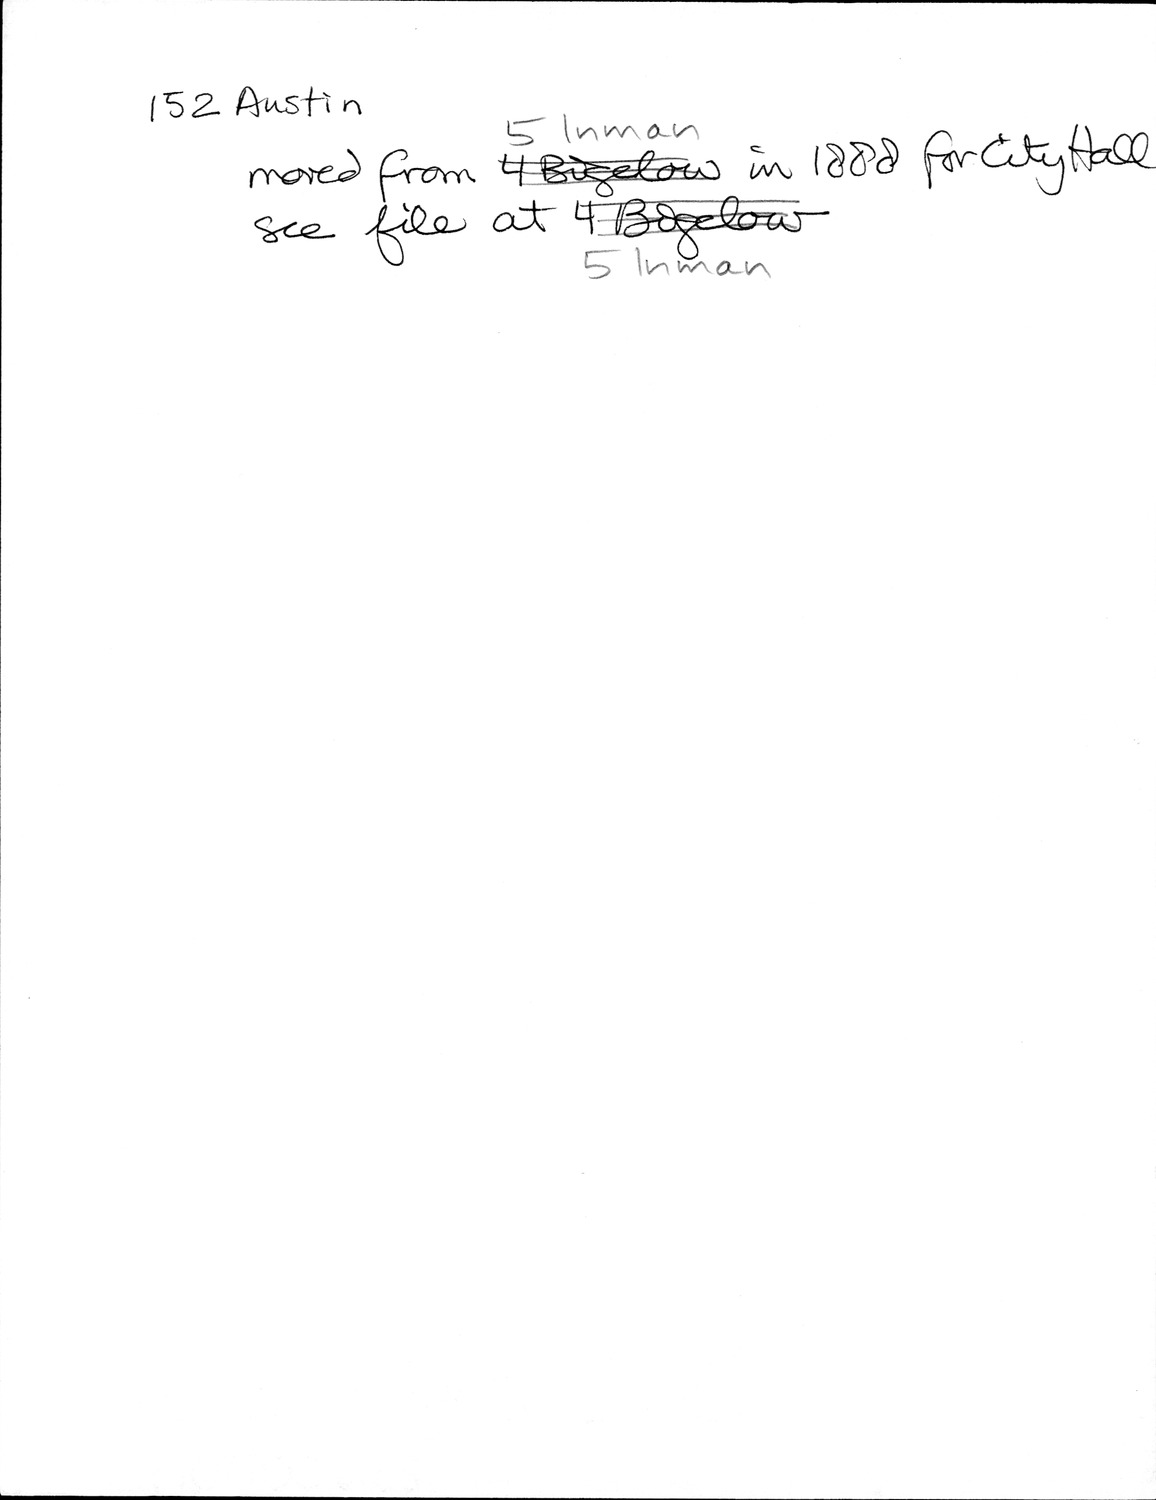 152 Austin
5 Inman
moved from 4 Bigelow in 1888 for City Hall
see file at 4 Bigelow
5 Inman